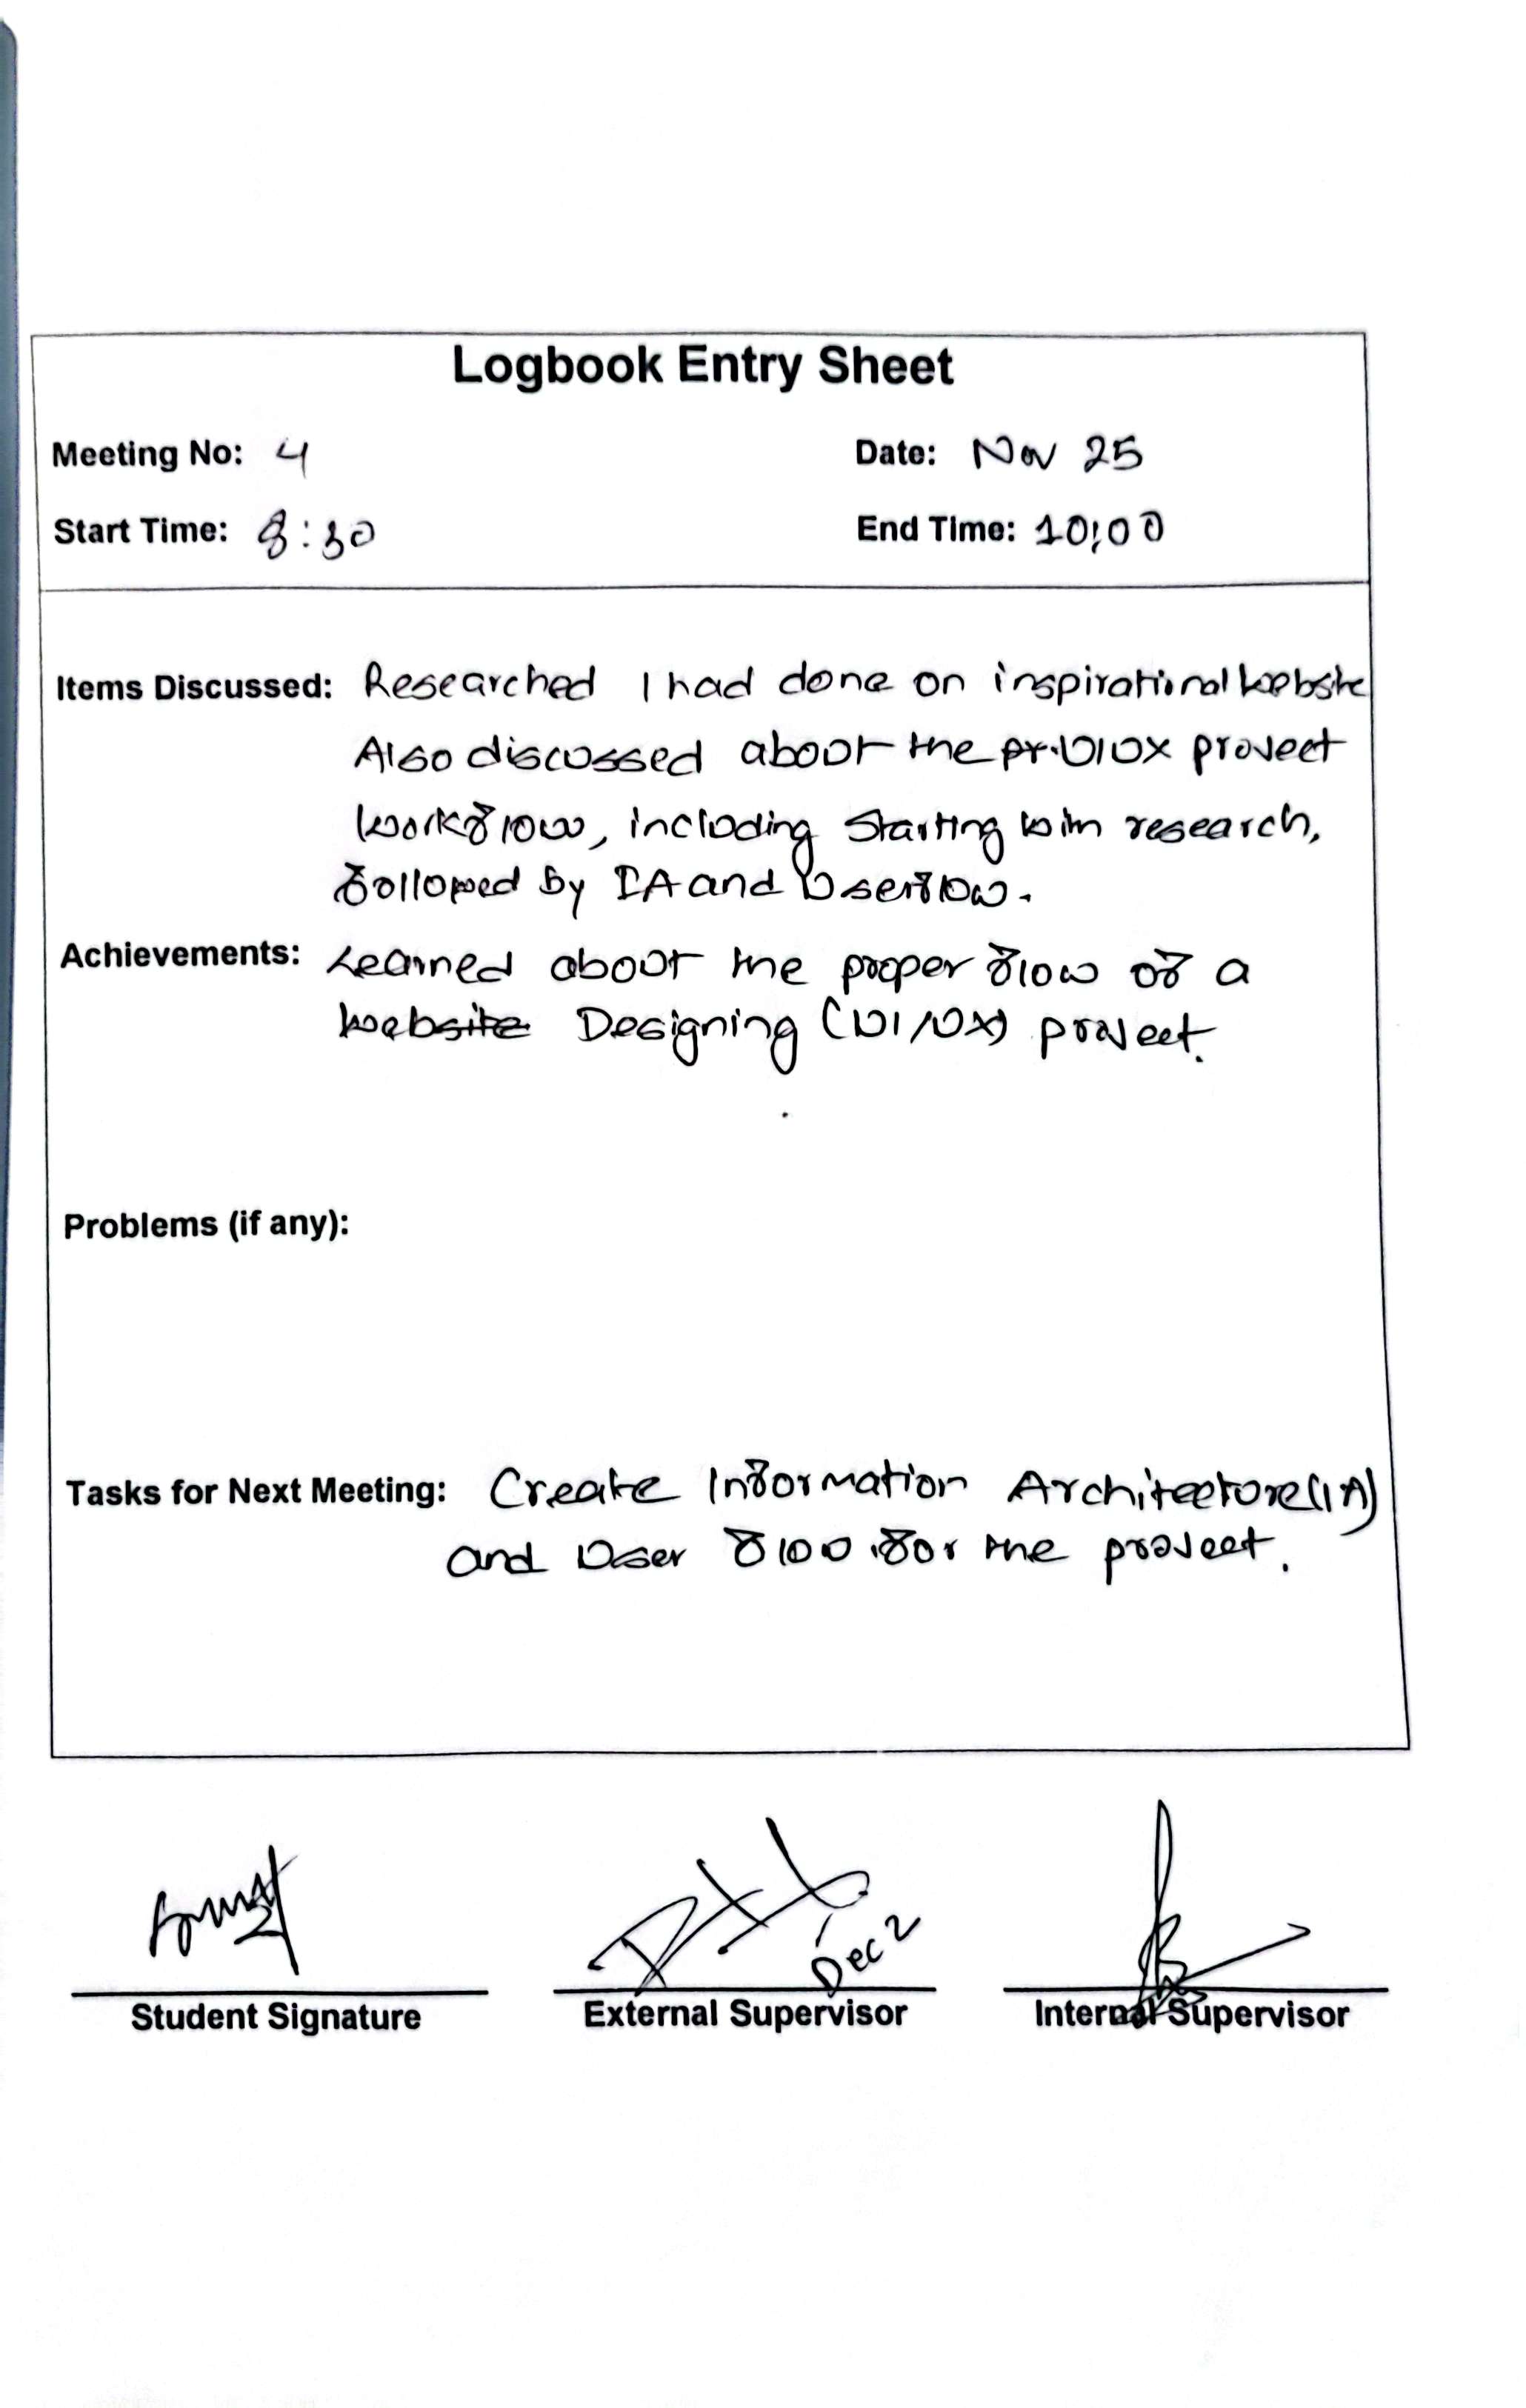 Logbook Entry Sheet
Meeting No: 4 Date: Nov 25
Start Time: 8:30 End Time: 10:00
Items Discussed: Researched I had done on inspirational website
Also discussed about the UIUX project
workflow, including starting with research,
followed by IA and Userflow.
Achievements: Learned about the proper flow of a
website Designing (UI/UX) project.
Problems (if any):
Tasks for Next Meeting: Create Information Architecture(IA)
and User floo for the project.
Dec 2
Student Signature External Supervisor Internal Supervisor